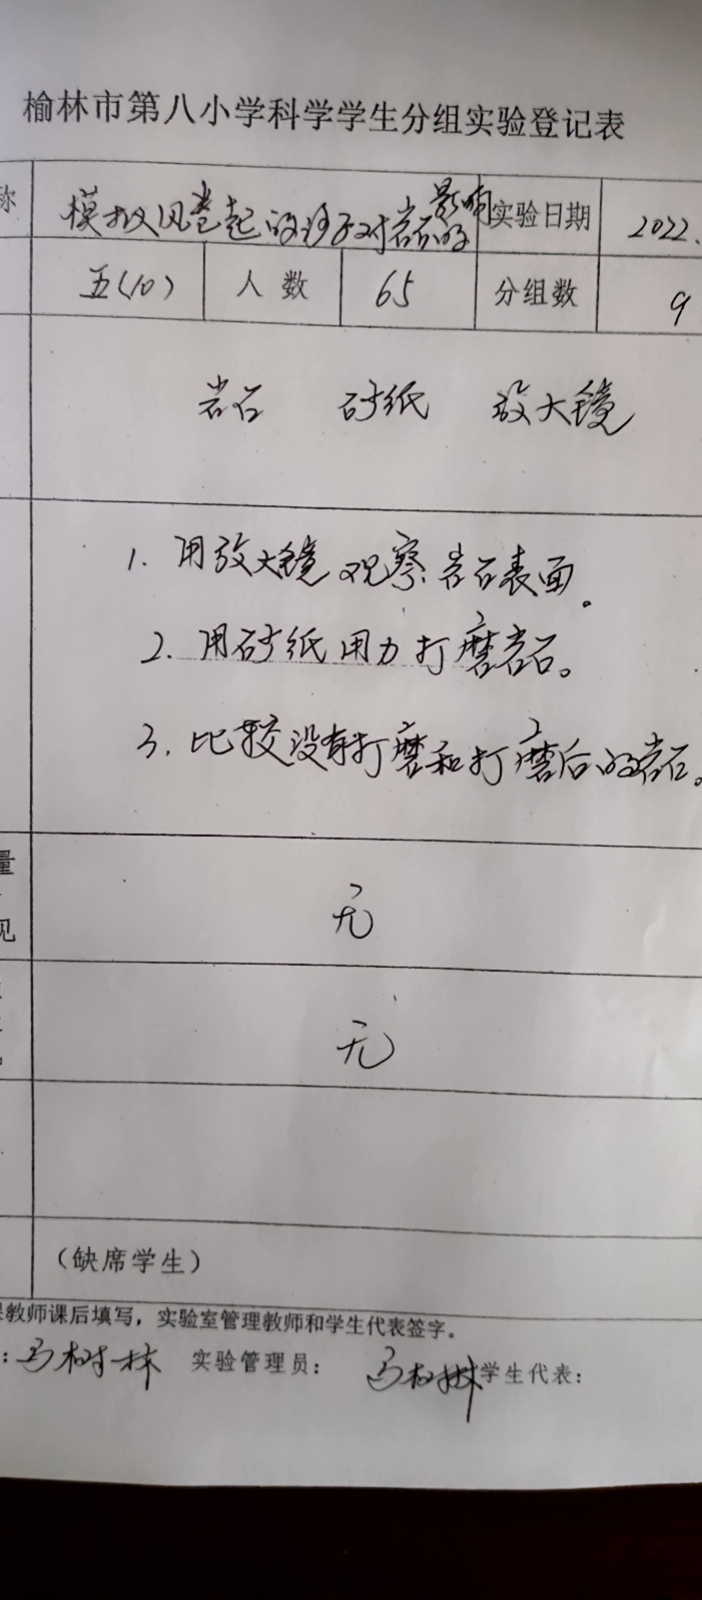 榆林市第八小学科学学生分组实验登记表
称 模拟风卷起的沙子对岩石的影响 实验日期 2022.
五(10) 人数 65 分组数 9
岩石 砂纸 放大镜
1. 用放大镜观察岩石表面。
2. 用砂纸用力打磨岩石。
3. 比较没有打磨和打磨后的岩石。
量
见
无
无
（缺席学生）
教师课后填写，实验室管理教师和学生代表签字。
：马树林 实验管理员： 马树林 学生代表：